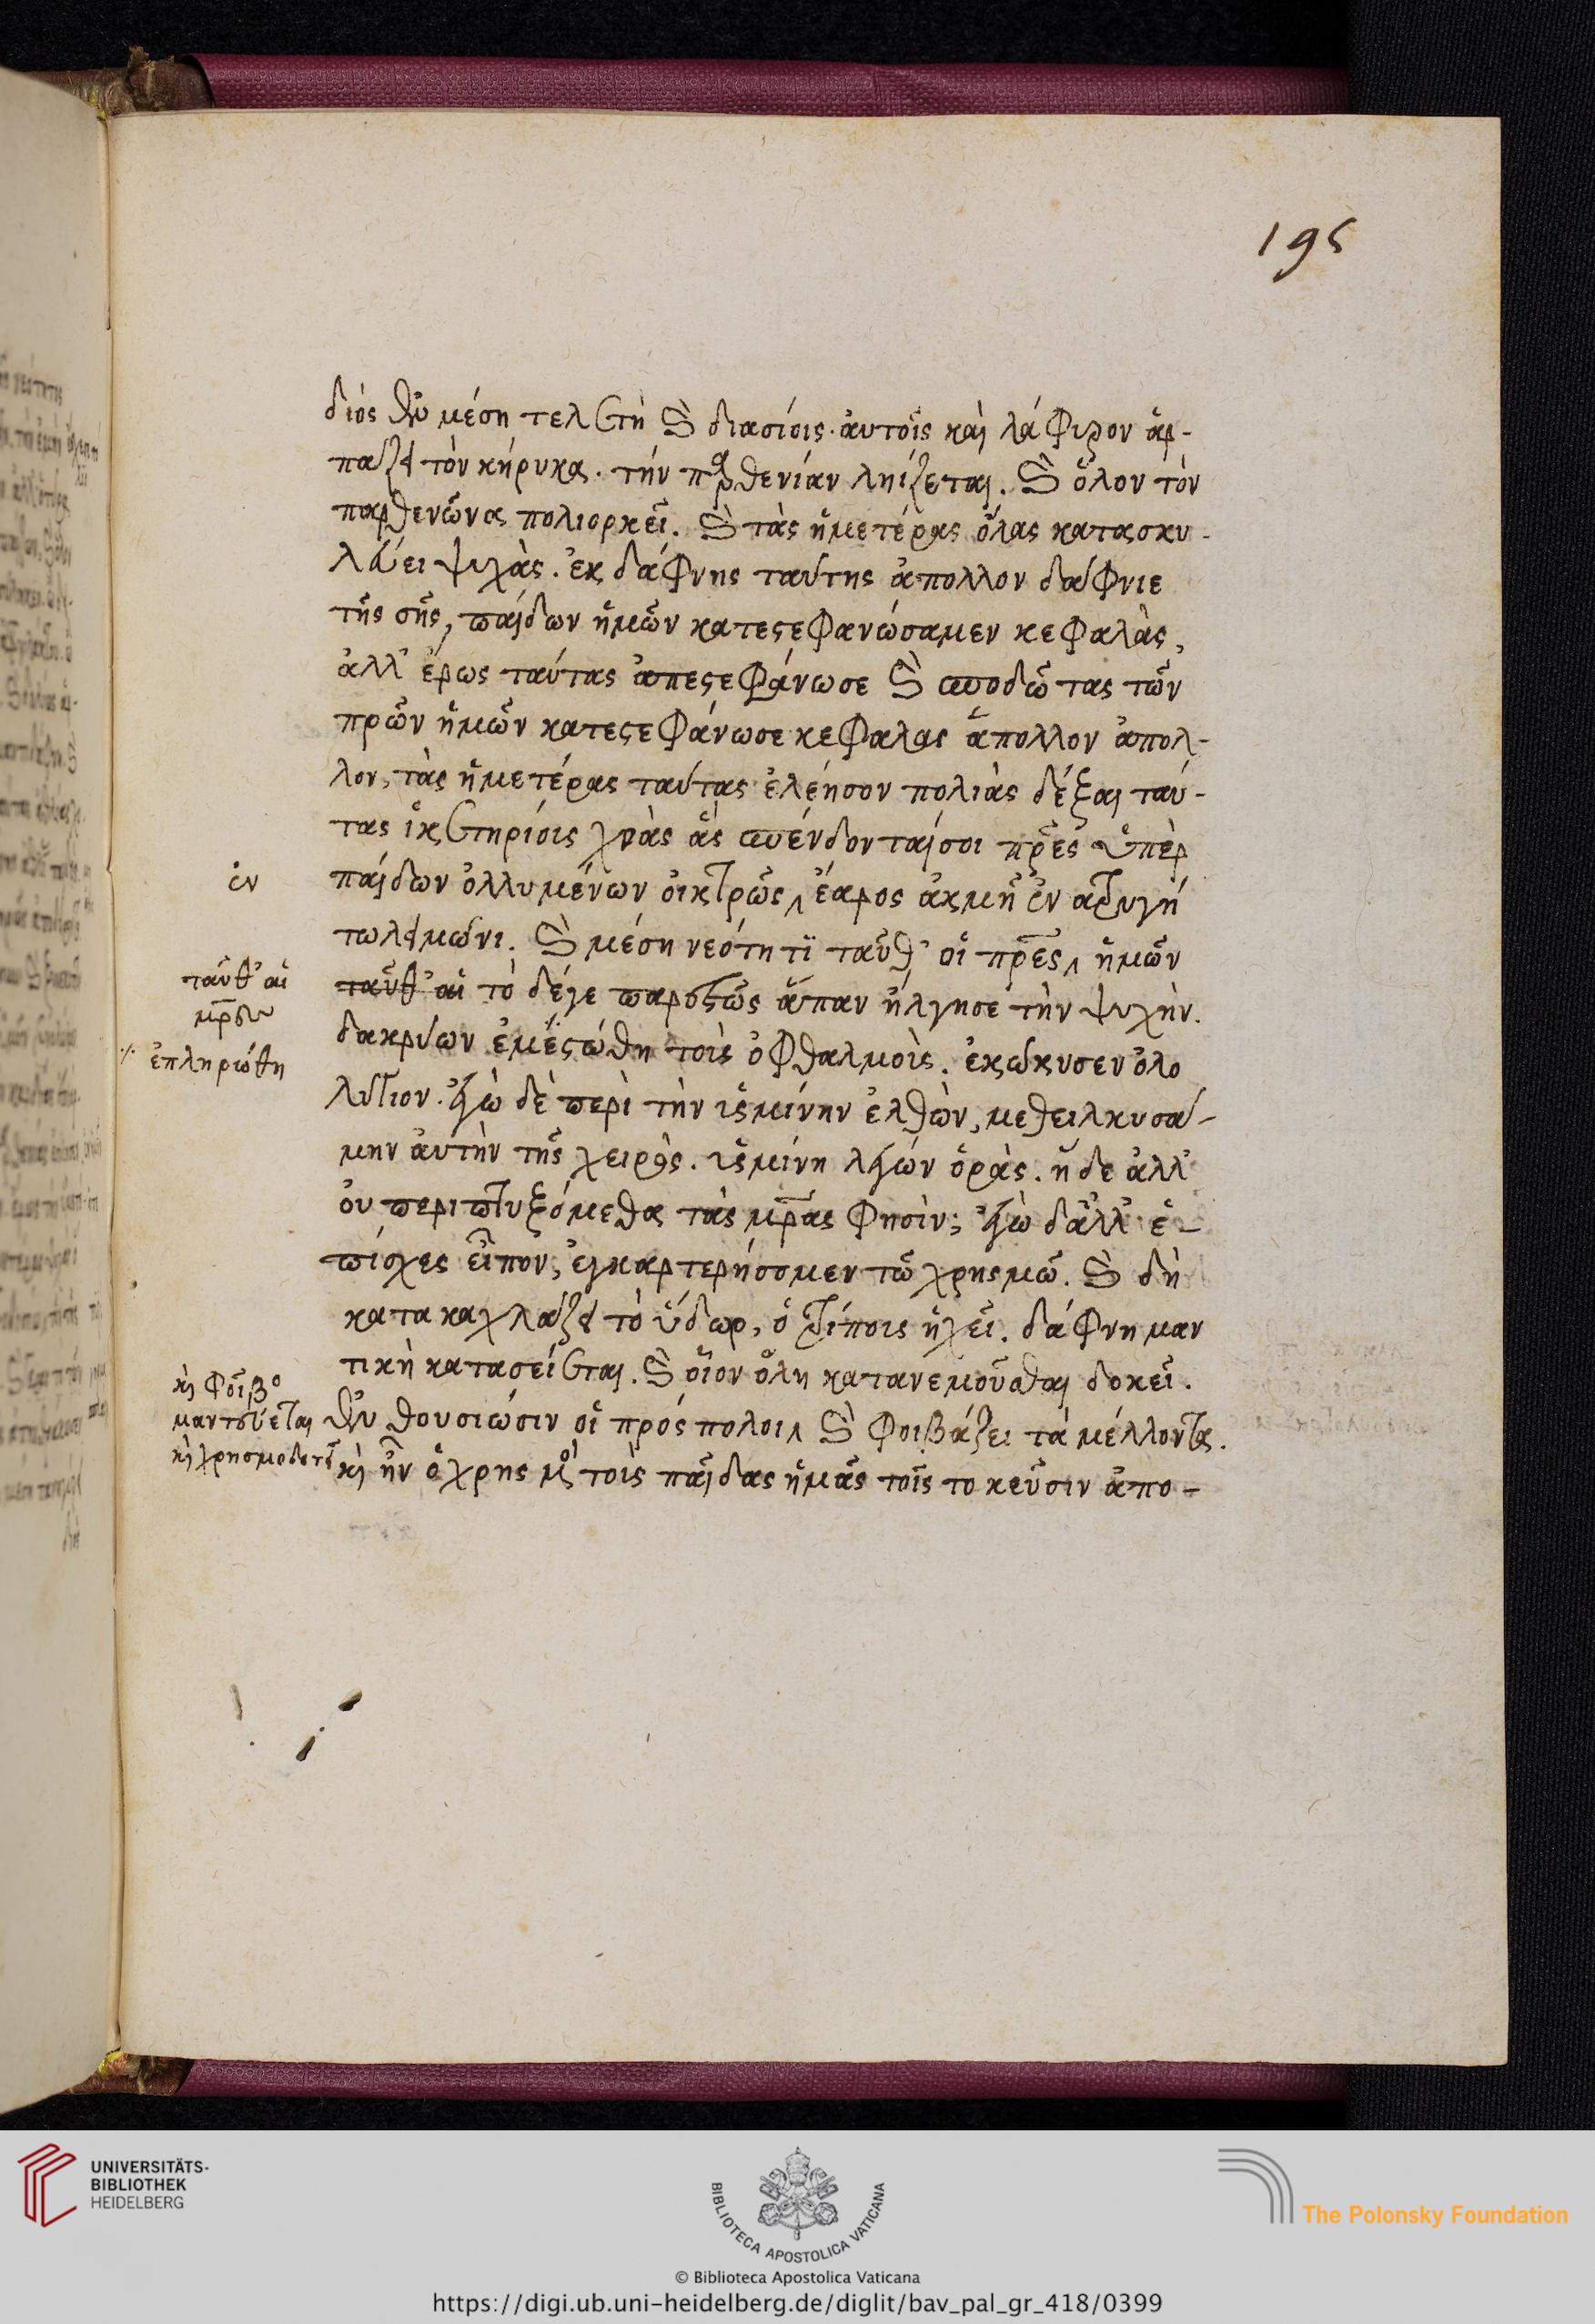 195
διὸς ἐν μέσῃ τελετῇ καὶ διασίοις. αὐτοῖς καὶ λάφυρον ἁρ-
πάζει τὸν κήρυκα. τὴν παρθενίαν ληίζεται. καὶ ὅλον τὸν
παρθενῶνα πολιορκεῖ. καὶ τὰς ἡμετέρας ὅλας κατασκυ-
λεύει ψυχὰς. ἐκ δάφνης ταύτης ἄπολλον δάφνιε
τῆς σῆς, παίδων ἡμῶν κατεστεφανώσαμεν κεφαλὰς,
ἀλλ' ἔρως ταύτας ἀπεστεφάνωσε καὶ σποδῷ τας τῶν
πρῶν ἡμῶν κατεστεφάνωσε κεφαλας ἄπολλον ἄπολ-
λον, τὰς ἡμετέρας ταύτας ἐλέησον πολιὰς δέξαι ταύ-
τας ἱκετηρίοις χοὰς ἃς σπένδονταί σοι πρες ὑπὲρ
παίδων ὀλλυμένων οἰκτρῶς, ἔαρος ἀκμῇ ἐν ἀτρυγή
τῳ λειμῶνι. καὶ μέσῃ νεότητι ταῦθ' οἱ πρες, ἡμῶν
ταῦθ' αἱ τὸ δέ γε παρεστὼς ἅπαν ἤλγησε τὴν ψυχὴν.
δακρύων ἐμεστώθη τοὶς ὀφθαλμοὶς. ἐκώκυσεν ὀλο
λύγιον. ἐγὼ δὲ περὶ τὴν ὑσμίνην ἐλθὼν, μεθειλκυσά-
μην αὐτὴν τῆς χειρὸς. ὑσμίνη λέγων ὁρᾷς. ἡ δε ἀλλ'
οὐ περιπτυξόμεθα τὰς μρας φησὶν; ἐγὼ δ' ἀλλ' ἐ-
πίσχες εἶπον, ἐγκαρτερήσομεν τῷ χρησμῷ. καὶ δὴ
κατακαχλάζει τὸ ὕδωρ, ὁ τρίπους ἠχεῖ. δάφνη μαν
τικὴ κατασείεται. καὶ οἷον ὅλη κατανεμοῦσθαι δοκεῖ.
ἐνθουσιῶσιν οἱ πρόσπολοι, καὶ φοιβάζει τὰ μέλλοντα.
καὶ ἦν ὁ χρησμὸς τοὶς παῖδας ἡμᾶς τοῖς τοκεῦσιν ἀπο-
ἐν
ταῦθ' αἱ
μρων
ἐπληρώθη
καὶ φοῖβο
μαντεύεται
καὶ χρησμοδοτεῖ
UNIVERSITÄTS-
BIBLIOTHEK
HEIDELBERG
BIBLIOTECA APOSTOLICA VATICANA
The Polonsky Foundation
© Biblioteca Apostolica Vaticana
https://digi.ub.uni-heidelberg.de/diglit/bav_pal_gr_418/0399